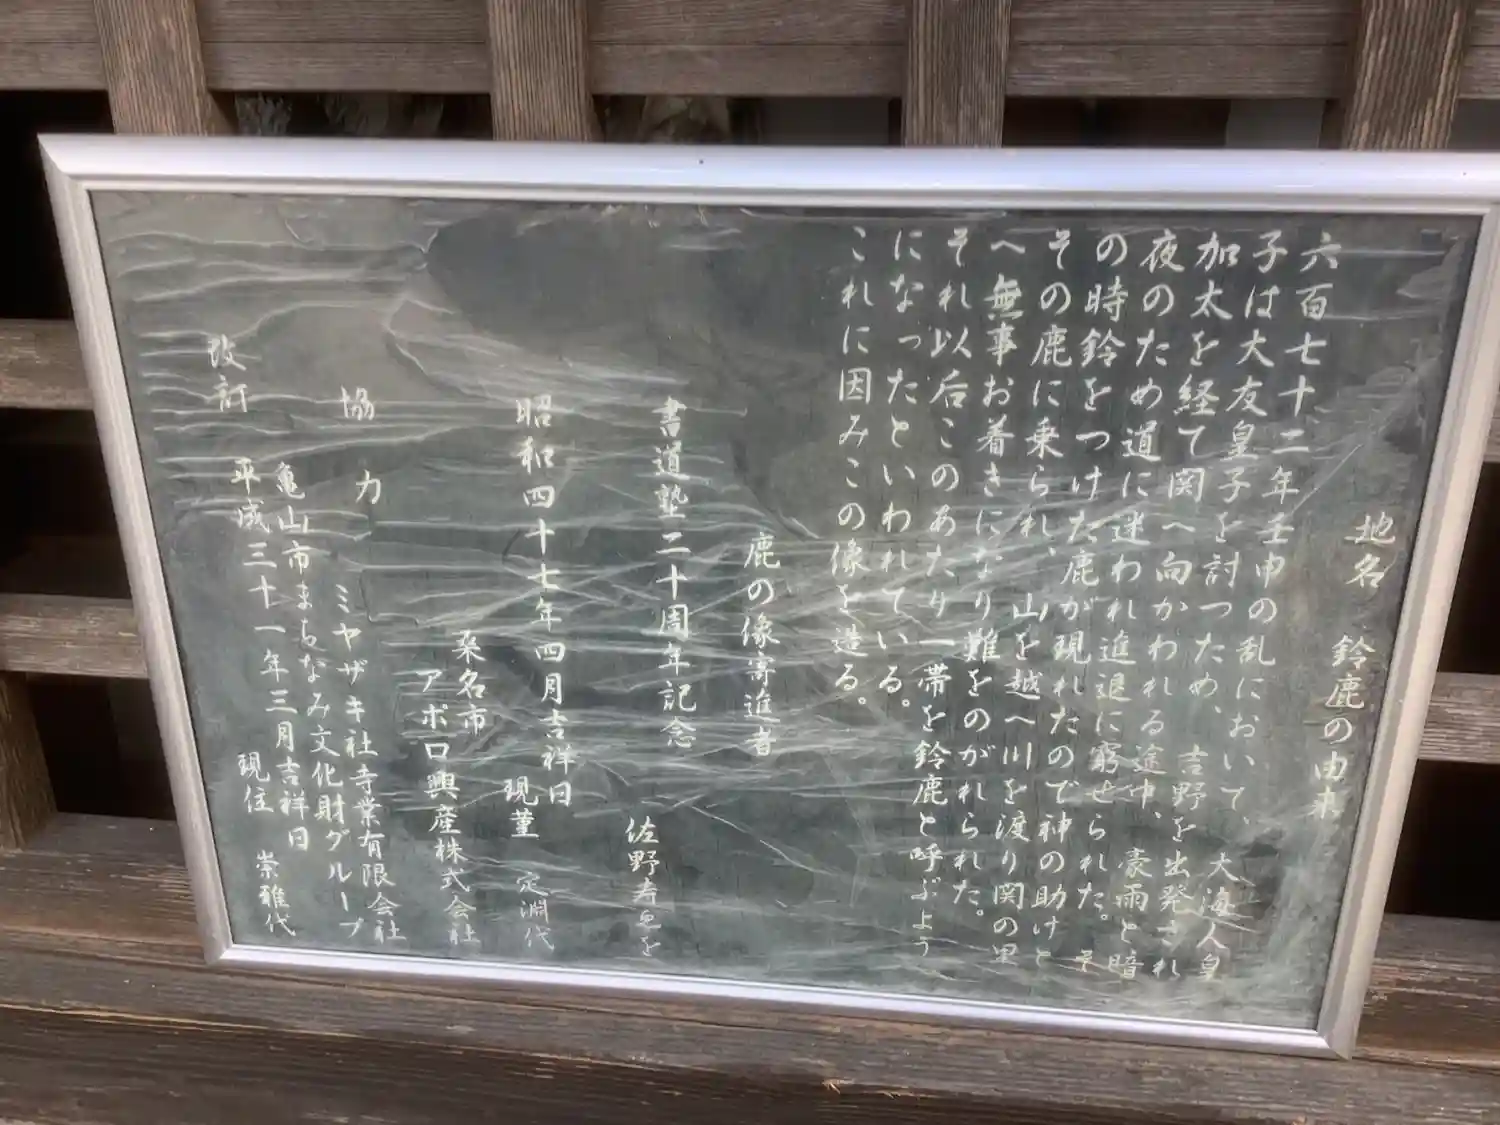 地名 鈴鹿の由来
六百七十二年壬申の乱において、大海人皇
子は大友皇子を討つため、吉野を出発され
加太を経て関へ向かわれる途中、豪雨と暗
夜のため道に迷われ進退に窮せられた。そ
の時鈴をつけた鹿が現れたので神の助けと
その鹿に乗られ、山を越へ川を渡り関の里
へ無事お着きになり難をのがれられた。
それ以后このあたり一帯を鈴鹿と呼ぶよう
になったといわれている。
これに因みこの像を造る。
鹿の像寄進者
書道塾二十周年記念 佐野寿
昭和四十七年四月吉祥日 現董 定淵代
桑名市
アポロ興産株式会社
協力 ミヤザキ社寺業有限会社
亀山市まちなみ文化財グループ
改訂 平成三十一年三月吉祥日
現住 崇雅代